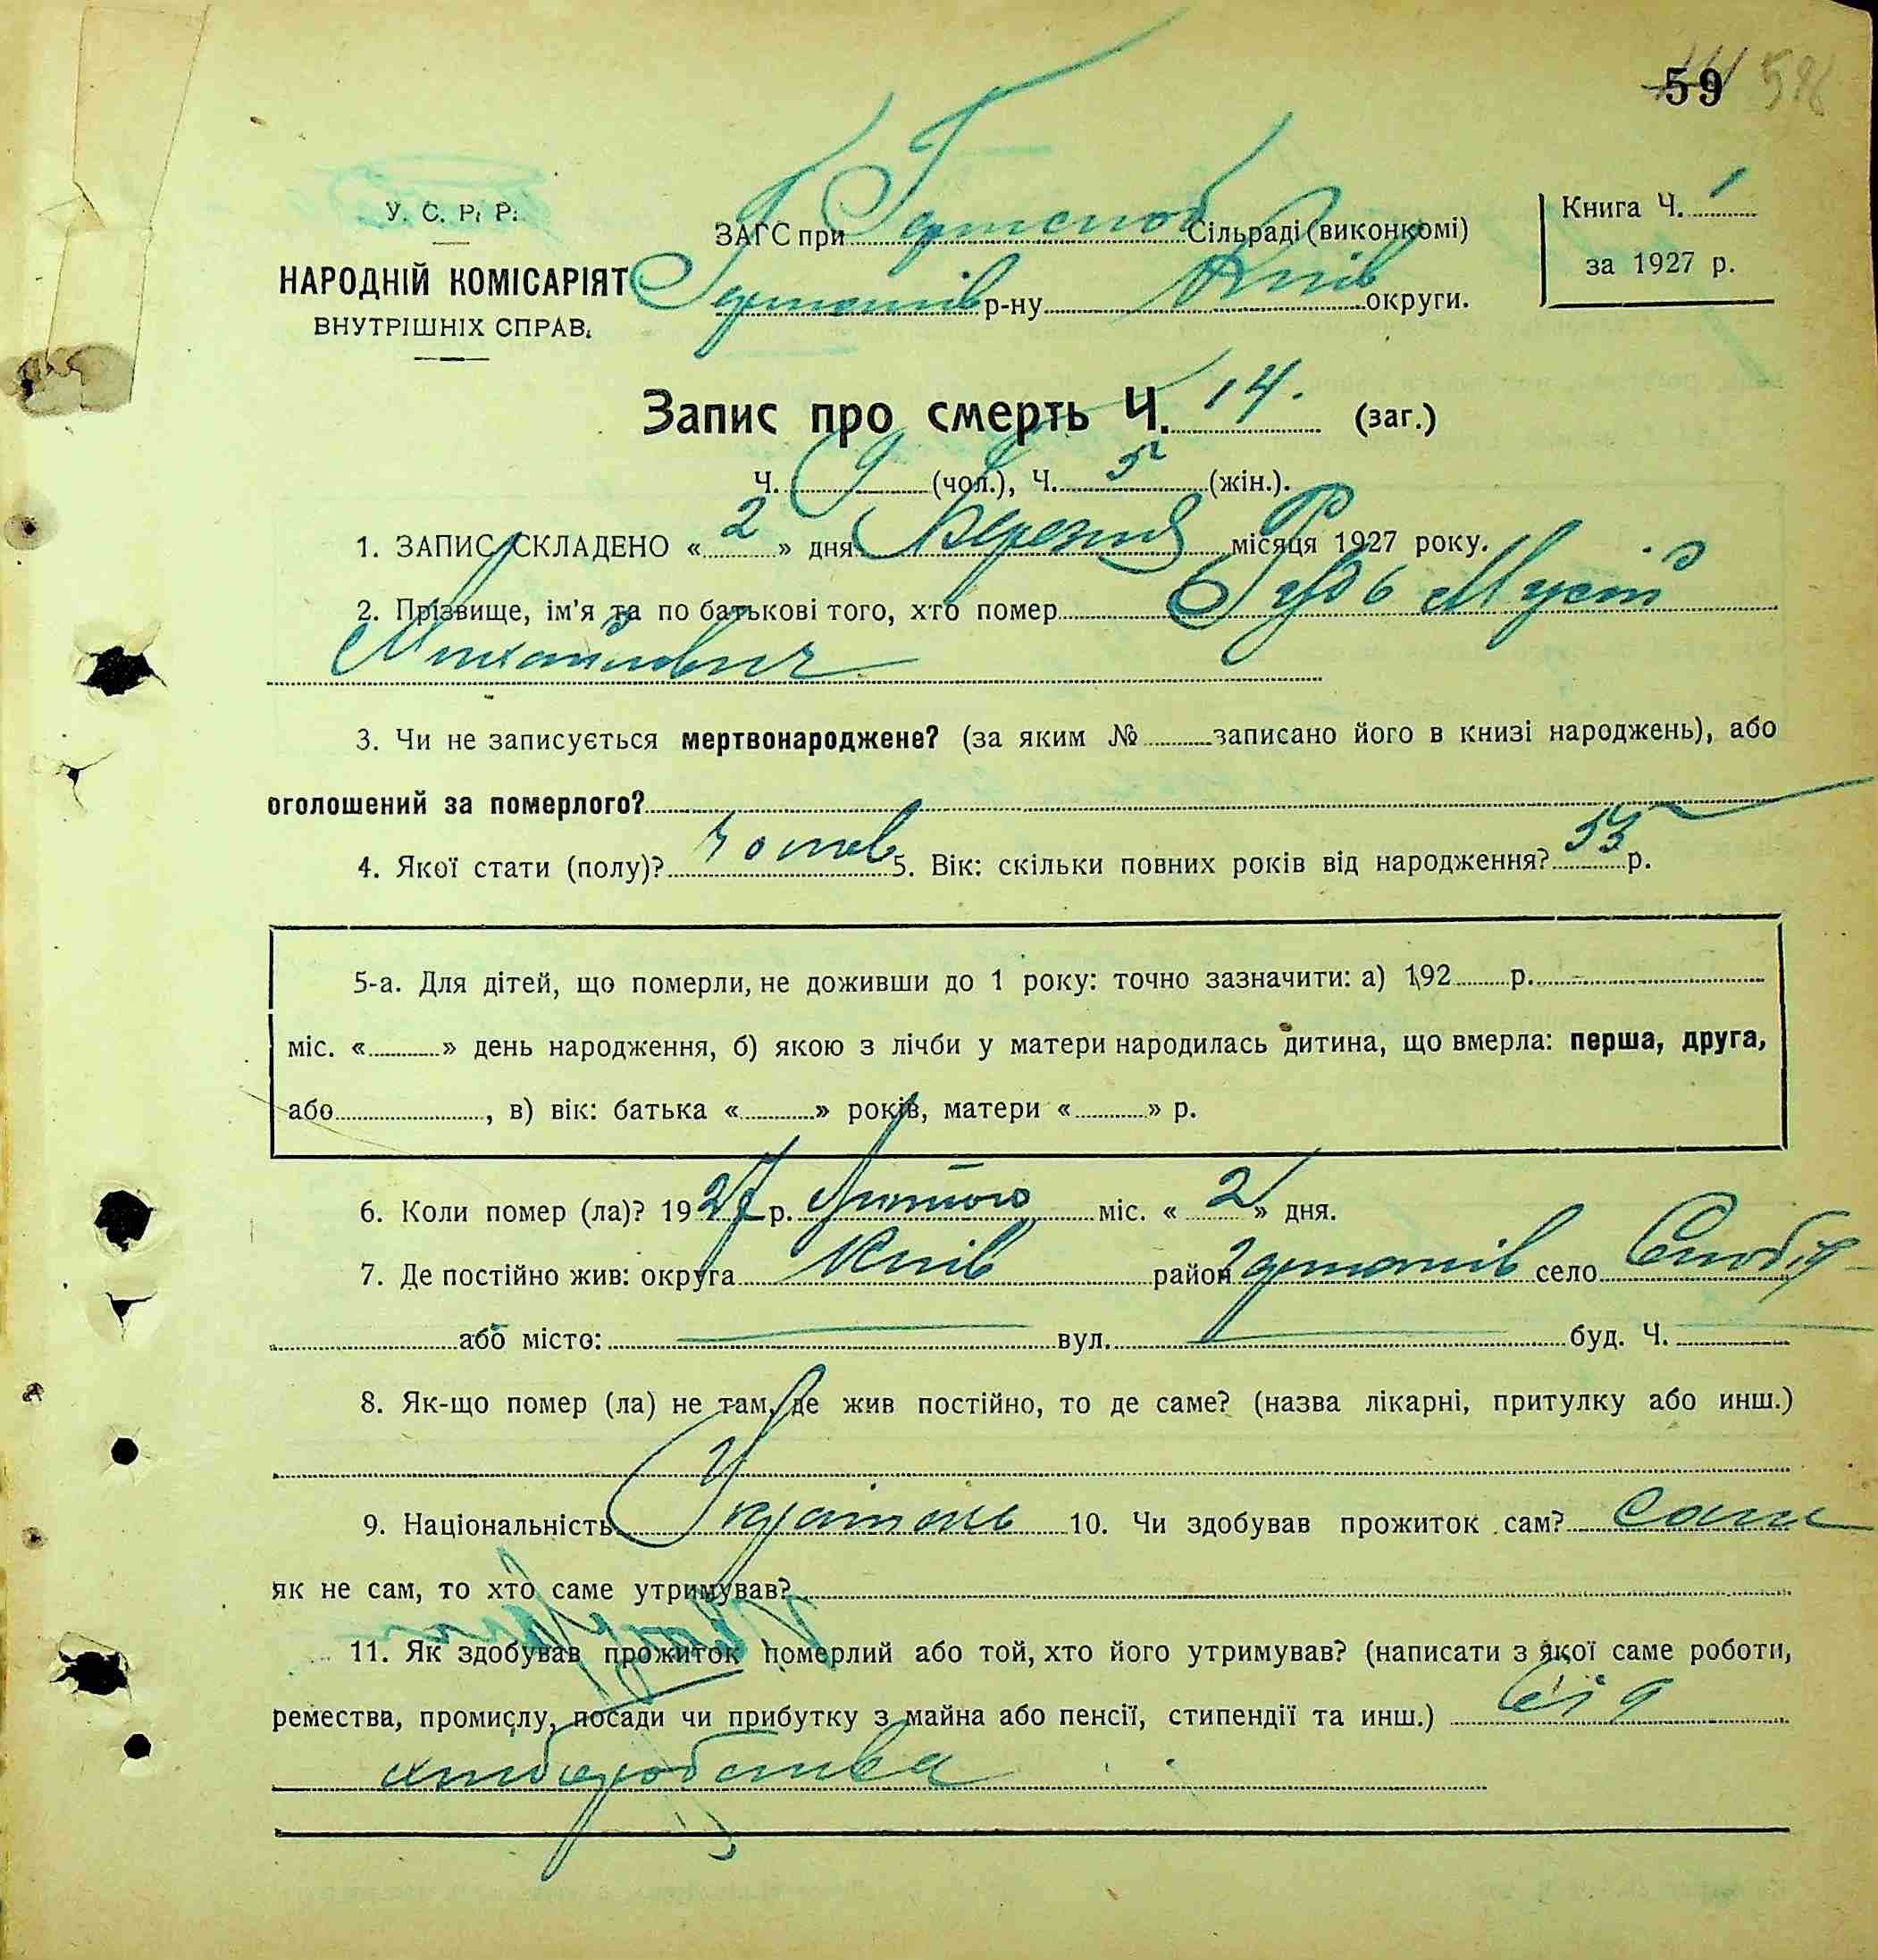 59
У. С. Р. Р.
НАРОДНІЙ КОМІСАРІЯТ
ВНУТРІШНІХ СПРАВ.
ЗАГС при Сільраді (виконкомі)
р-ну Київ округи.
Книга Ч. 1
за 1927 р.
Запис про смерть Ч. 14. (заг.)
Ч. 9 (чол.), Ч. 5 (жін.).
1. ЗАПИС СКЛАДЕНО « 2 » дня Березня місяця 1927 року.
2. Прізвище, ім'я та по батькові того, хто помер Мусій
Михайлович
3. Чи не записується мертвонароджене? (за яким № записано його в книзі народжень), або
оголошений за померлого?
4. Якої стати (полу)? чолов 5. Вік: скільки повних років від народження? 55 р.
5-а. Для дітей, що померли, не доживши до 1 року: точно зазначити: а) 192 р.
міс. « » день народження, б) якою з лічби у матери народилась дитина, що вмерла: перша, друга,
або , в) вік: батька « » років, матери « » р.
6. Коли помер (ла)? 1927 р. Лютого міс. « 2 » дня.
7. Де постійно жив: округа Київ район село
або місто: вул. буд. Ч.
8. Як-що помер (ла) не там, де жив постійно, то де саме? (назва лікарні, притулку або инш.)
9. Національність Україн 10. Чи здобував прожиток сам? Сам
як не сам, то хто саме утримував?
11. Як здобував прожиток померлий або той, хто його утримував? (написати з якої саме роботи,
ремества, промислу, посади чи прибутку з майна або пенсії, стипендії та инш.) від
хліборобства